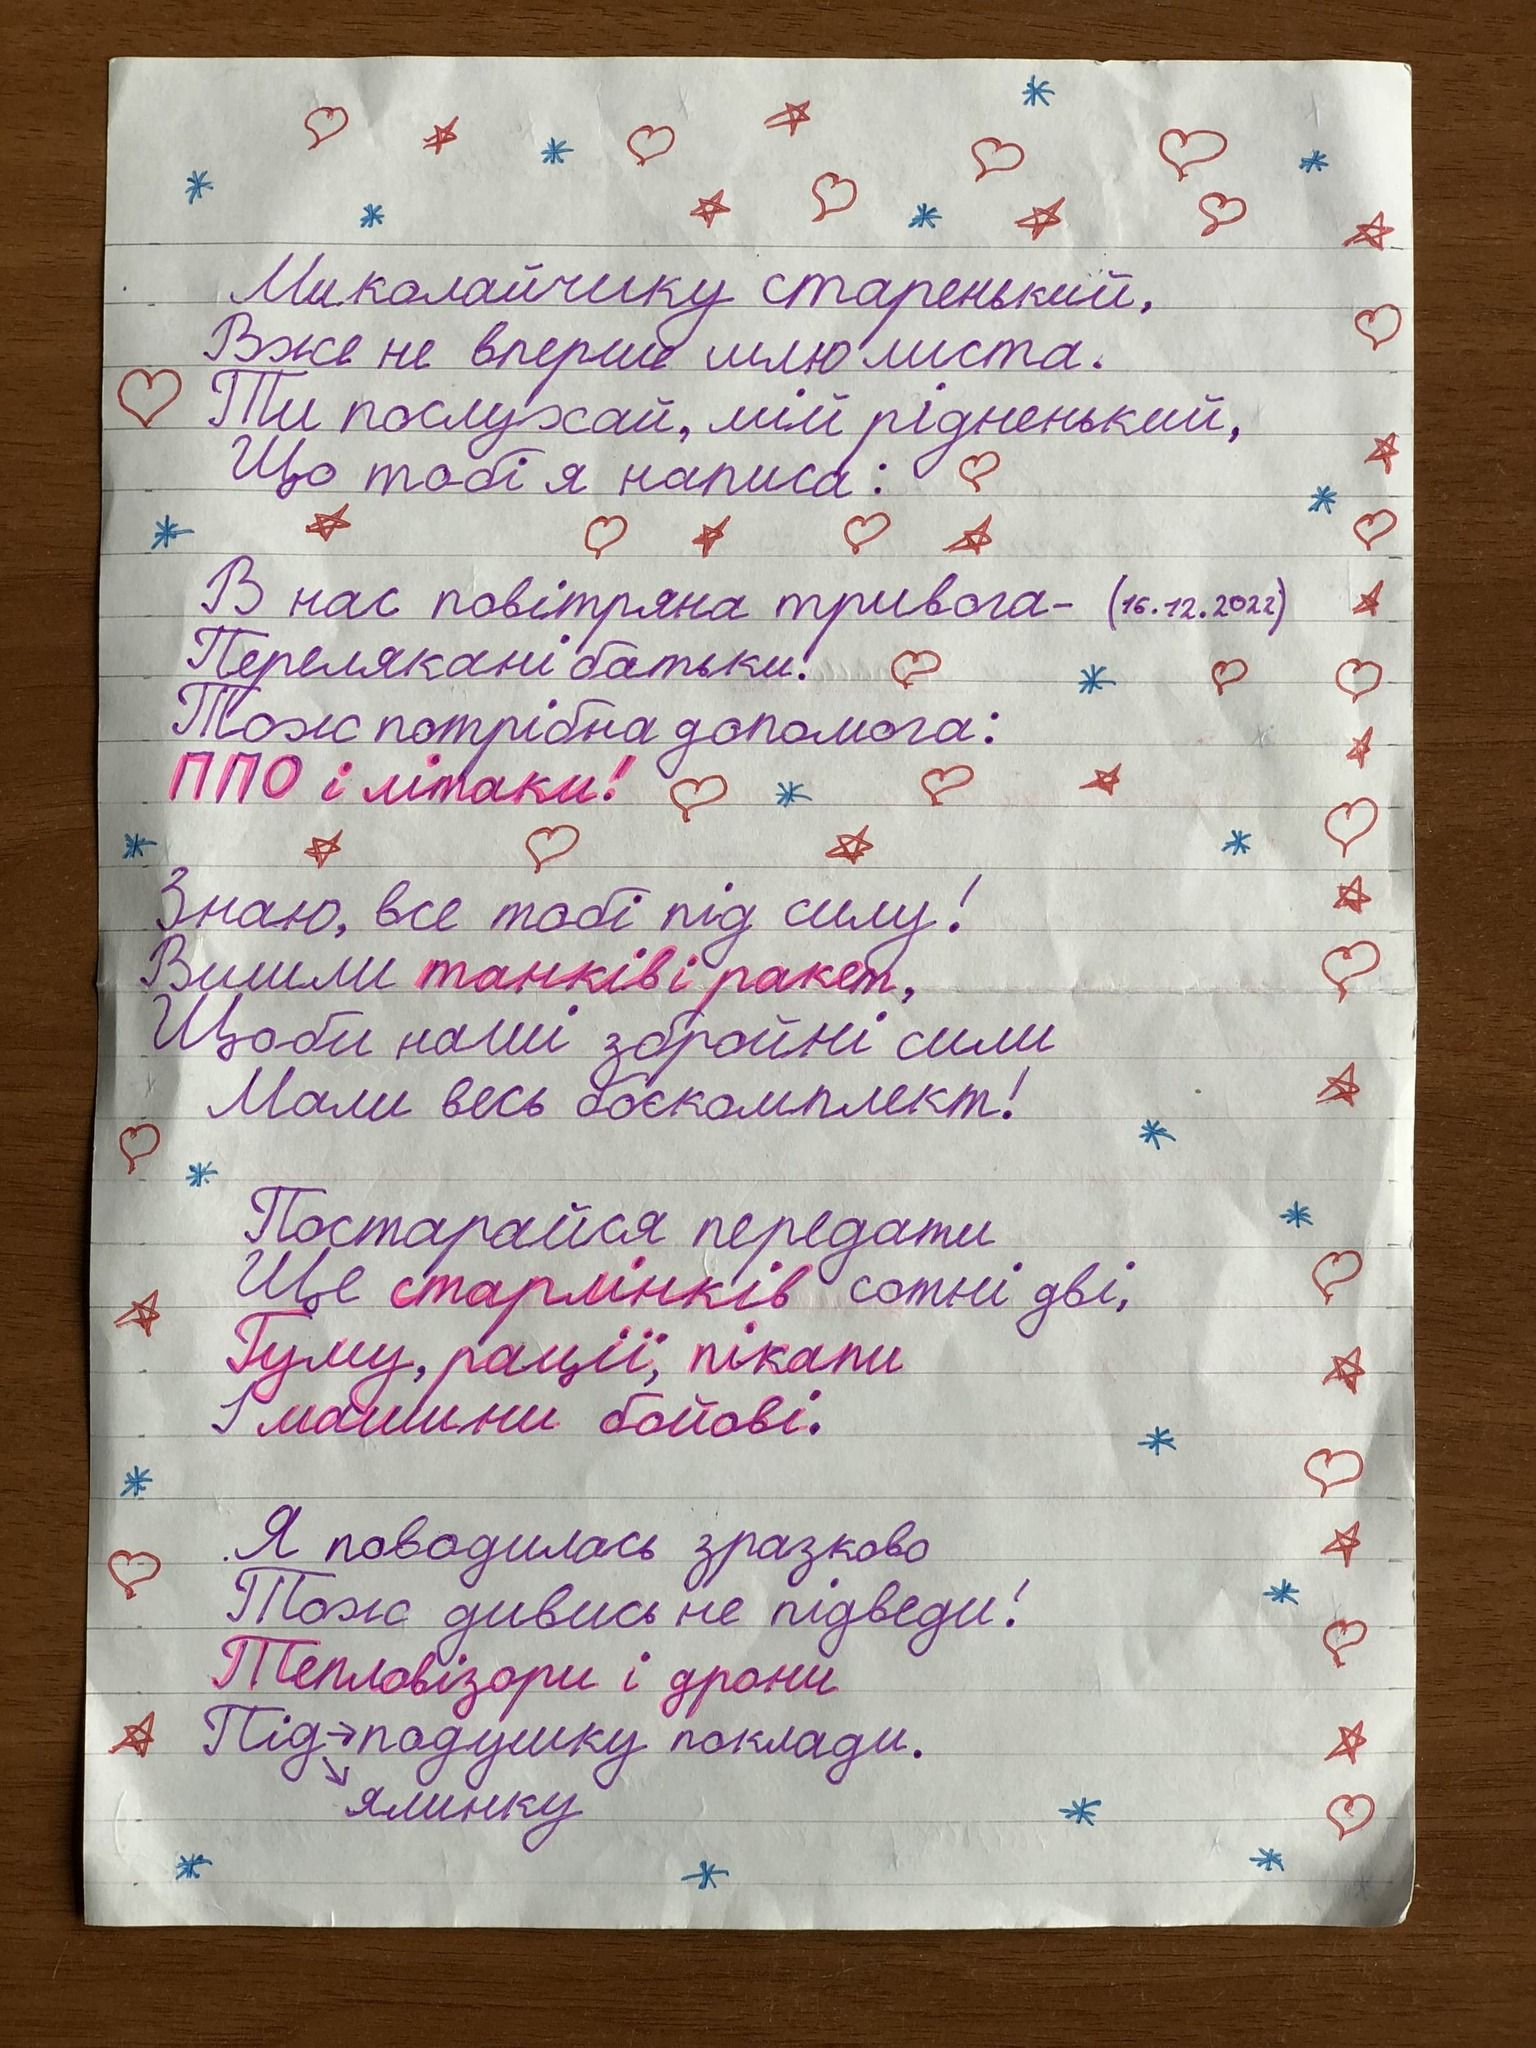 Миколайчику старенький,
Вже не вперше шлю листа.
Ти послухай, мій рідненький,
Що тобі я написа:
В нас повітряна тривога- (16.12.2022)
Перелякані батьки.
Тож потрібна допомога:
ППО і літаки!
Знаю, все тобі під силу!
Вишли танків і ракет,
Щоби наші збройні сили
Мали весь боєкомплект!
Постарайся передати
Ще старлінків сотні дві,
Гуму, рації, пікапи
І машини бойові.
Я поводилась зразково
Тож дивись не підведи!
Тепловізори і дрони
Під→подушку поклади.
↘ялинку